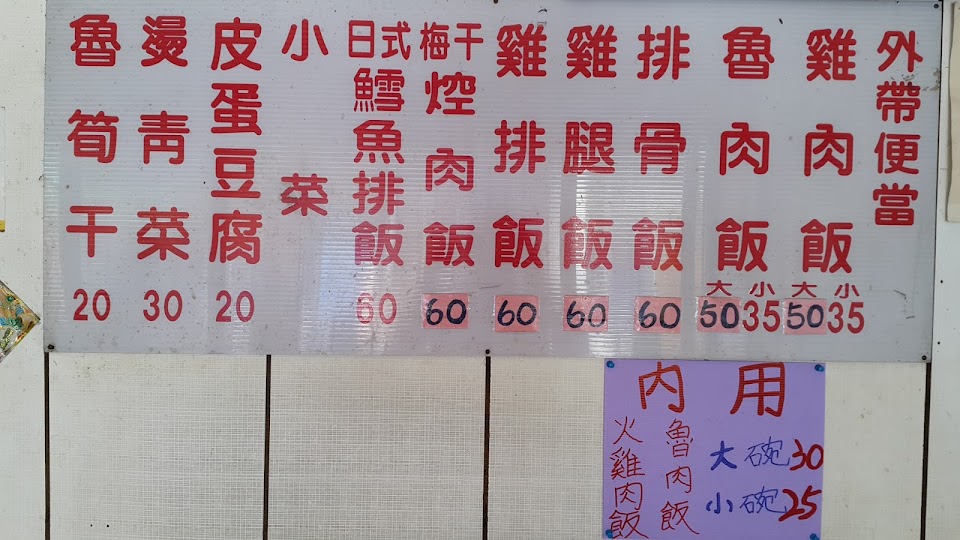 外帶便當
雞肉飯 大50 小35
魯肉飯 大50 小35
排骨飯 60
雞腿飯 60
雞排飯 60
梅干焢肉飯 60
日式鱈魚排飯 60
小菜
皮蛋豆腐 20
燙青菜 30
魯筍干 20
內用
魯肉飯
火雞肉飯
大碗30
小碗25